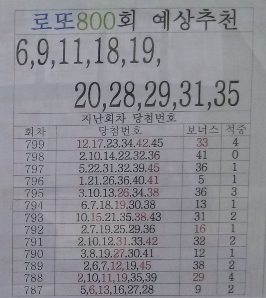 로또800회 예상추천
6,9,11,18,19,
20,28,29,31,35
지난회차 당첨번호
회차 당첨번호 보너스 적중
799 12.17.23.34.42.45 33 4
798 2.10.14.22.32.36 41 0
797 5.22.31.32.39.45 36 1
796 1.21.26.36.40.41 5 1
795 3.10.13.26.34.38 36 3
794 6.7.18.19.30.38 13 1
793 10.15.21.35.38.43 31 2
792 2.7.19.25.29.36 16 1
791 2.10.12.31.33.42 32 2
790 3.8.19.27.30.41 12 1
789 2,6,7,12,19,45 38 2
788 2,10,11,19,35,39 29 4
787 5,6,13,16,27,28 9 2